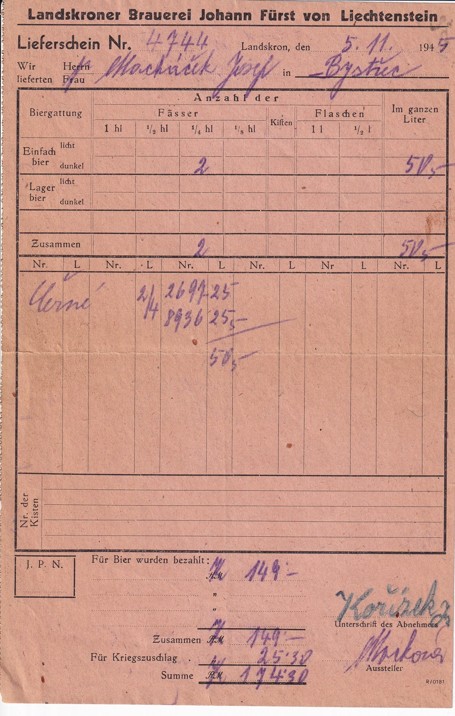 Landskroner Brauerei Johann Fürst von Liechtenstein
Lieferschein Nr. 4744 Landskron, den 5. 11. 1945
Wir Herrn
lieferten Frau Macháček Josef in Bystřec
Anzahl der
Biergattung Fässer Kisten Flaschen Im ganzen Liter
1 hl 1/2 hl 1/4 hl 1/8 hl 1 l 1/2 l
Einfach bier licht
dunkel 2 50,-
Lager bier licht
dunkel
Zusammen 2 50,-
Nr. L Nr. L Nr. L Nr. L Nr. L Nr. L
Černé 2/4 2697 25
8936 25,-
50,-
Nr. der Kisten
J. P. N.
Für Bier wurden bezahlt: 149:-
"
"
Zusammen 149:-
Für Kriegszuschlag 25·30
Summe 174·30
Unterschrift des Abnehmers
Aussteller